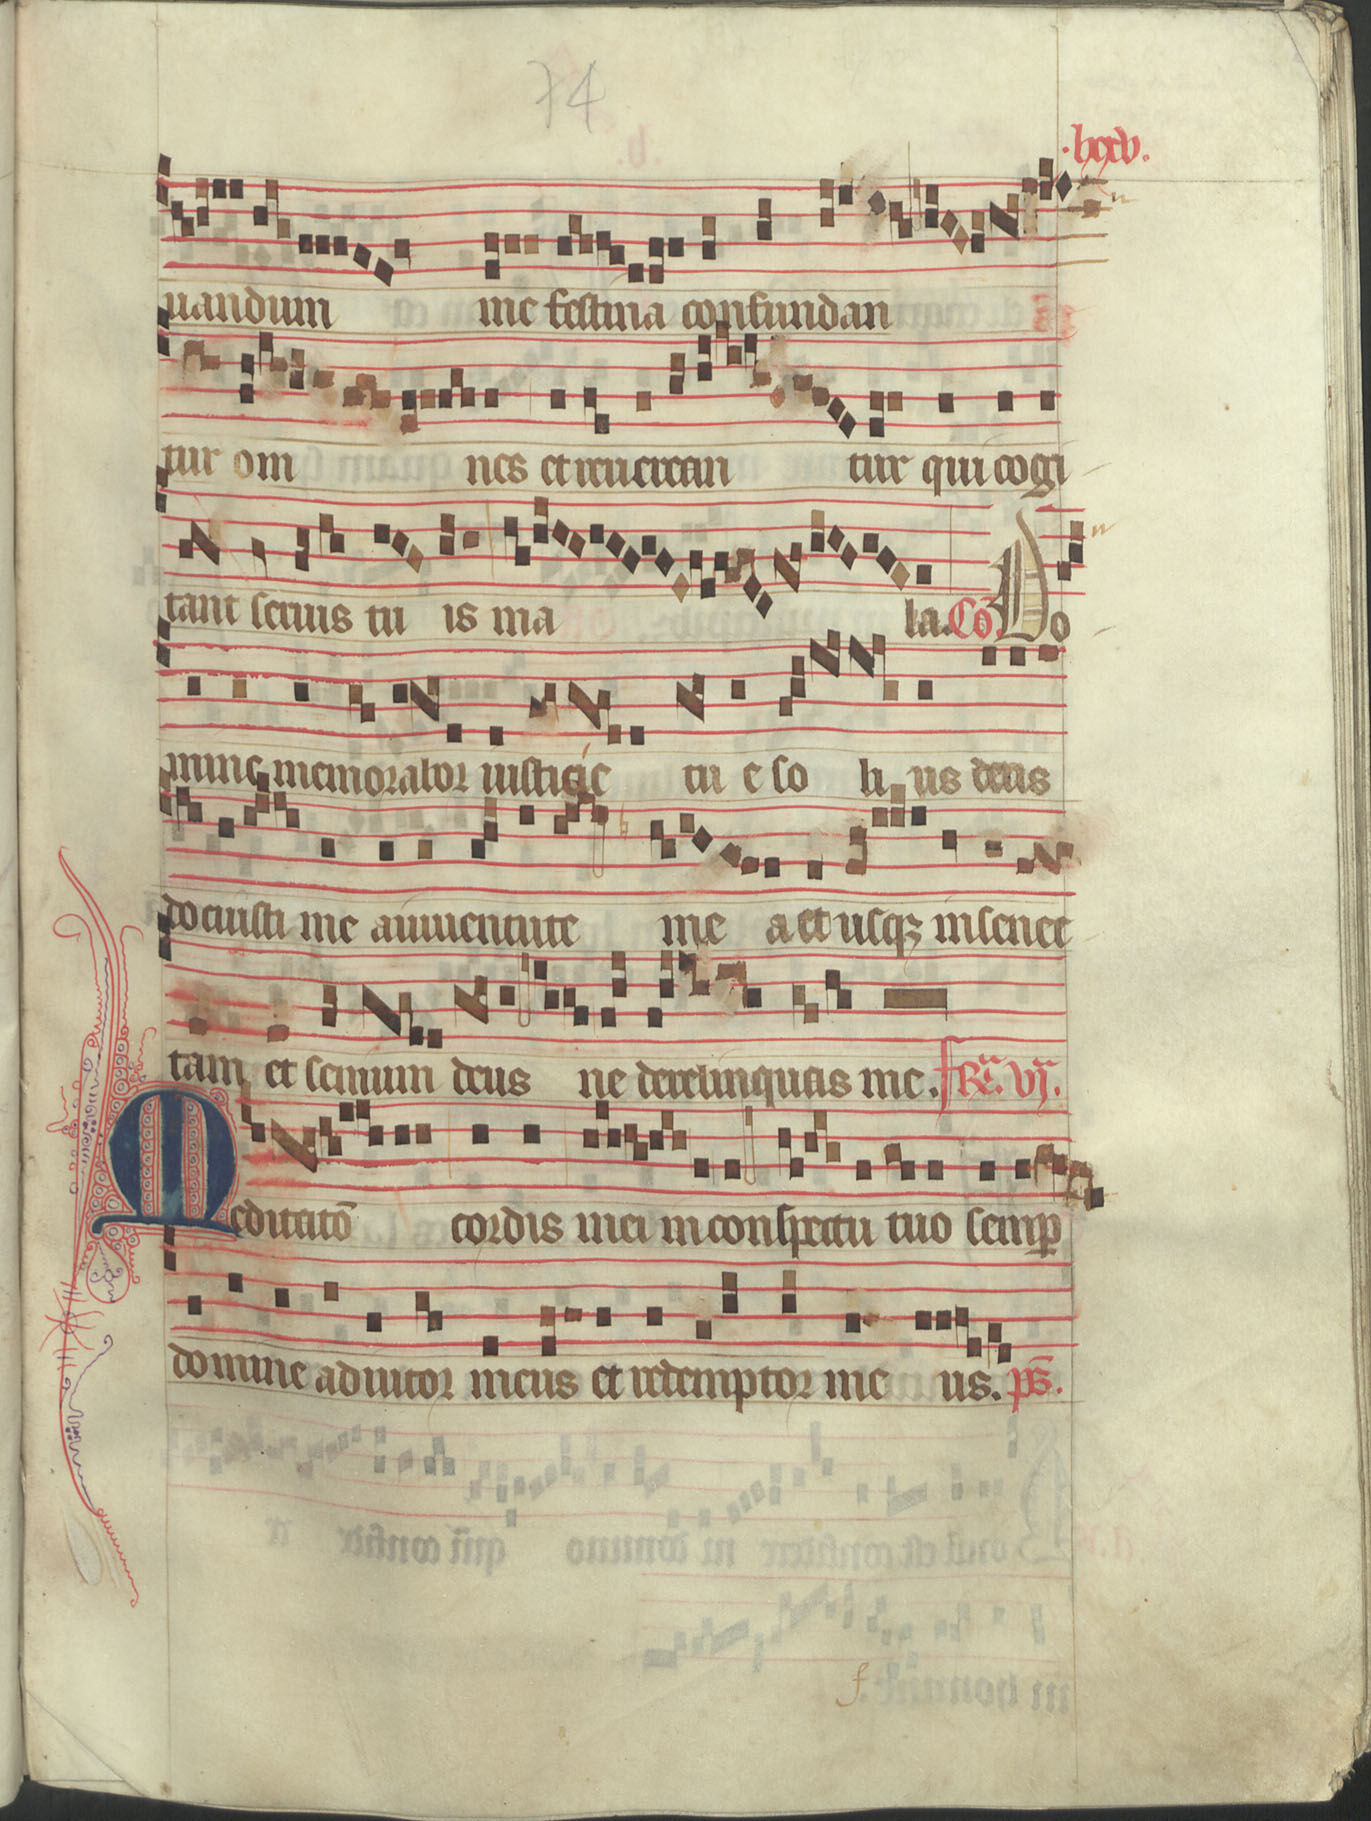 74
·lxxv.
uandum me festina confundan
tur om nes et reuerean tur qui cogi
tant seruis tu is ma la. Cō Do
mine memorabor iusticie tu e so li us deus
docuisti me a iuuentute me a et usqꝫ in senec
tam et senium deus ne derelinquas me. fr̄a vj.
Meditatō cordis mei in conspectu tuo semp̲
domine adiutor meus et redemptor me us. ps̄.
f